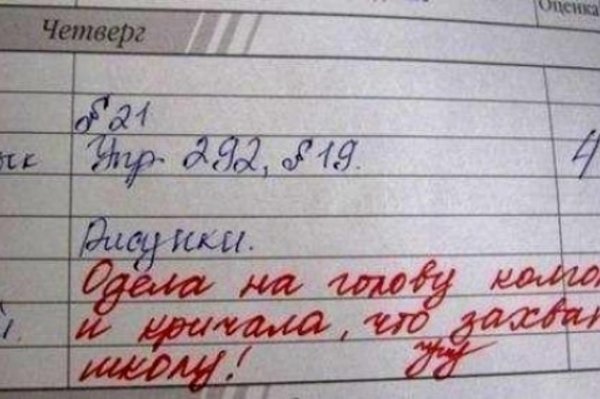 Оценка
Четверг
§ 21
Упр. 292, § 19. 4
Рисунки.
Одела на голову колго
и кричала, что захва
школу!